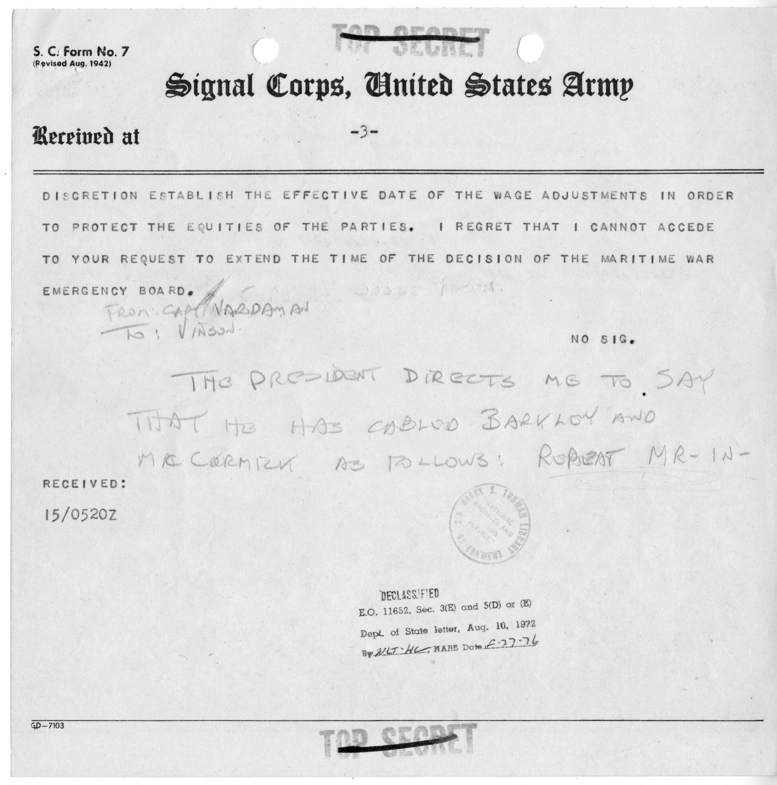 TOP SECRET
S. C. Form No. 7
(Revised Aug. 1942)
Signal Corps, United States Army
Received at
-3-
DISCRETION ESTABLISH THE EFFECTIVE DATE OF THE WAGE ADJUSTMENTS IN ORDER
TO PROTECT THE EQUITIES OF THE PARTIES. I REGRET THAT I CANNOT ACCEDE
TO YOUR REQUEST TO EXTEND THE TIME OF THE DECISION OF THE MARITIME WAR
EMERGENCY BOARD.
FROM: CAPT VARDAMAN
TO: VINSON
NO SIG.
THE PRESIDENT DIRECTS ME TO SAY
THAT HE HAS CABLED BARKLEY AND
MCCORMICK AS FOLLOWS: REPEAT MR-IN-
RECEIVED:
15/0520Z
HARRY S. TRUMAN LIBRARY
NATIONAL
ARCHIVES AND
SERVICE
GOVERNMENT
DECLASSIFIED
E.O. 11652, Sec. 3(E) and 5(D) or (E)
Dept. of State letter, Aug. 10, 1972
By NLT-HC, NARS Date 5-27-76
GD-7103
TOP SECRET